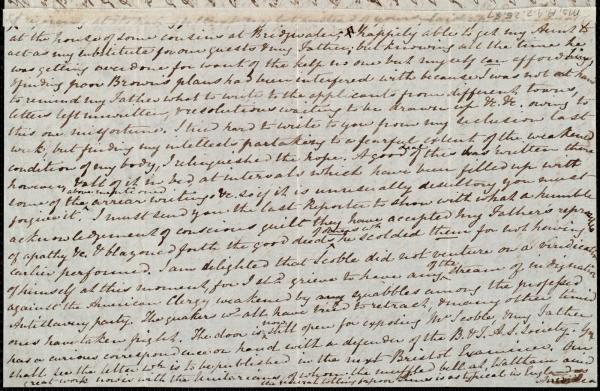 Ms. A.1.2.16.87
at the house of some cousins at Bridgwater, & happily able to get my Aunt to
act as my substitute for our guests & my Father, but knowing all the time he
was getting overdone for want of the help no one but myself can afford him,
& finding poor Brown's plans had been interfered with because I was not at home
to remind my Father what to write to the applicants from different towns,
letters left unwritten, & resolutions wanting to be drawn up &c. &c. owing to
this one misfortune. I tried hard to write to you from my seclusion last
week, but finding my intellects partaking to a fearful extent of the weakened
condition of my body, I relinquished the hope. A good deal of this was written there
however, & all of it in bed, at intervals which have been filled up with
some of the arrear writings &c. so if it is unusually desultory, you must
forgive it. I must send you the last Reporter to show with what a humble
acknowledgement of conscious guilt they have accepted my Father's reproofs
of apathy &c, & blazoned forth the good deeds he scolded them for not having
earlier performed. I am delighted that Scoble did not venture on a vindication
of himself at this moment, for I shd. grieve to have the dream of indignation
against the American Clergy weakened by any squabbles among the professed
Antislavery party. The Quakers wd. all have tried to retract, & many other timid
ones have taken fright. The door is now still open for exposing Mr. Scoble, & my Father
has a curious correspondence on hand with a defender of the B. & F. A. S. Society. You
shall see the letter wh. is to be published in the next Bristol Examiner. Our
great work now is with the Unitarians, of whom the muffled bell at Waltham and